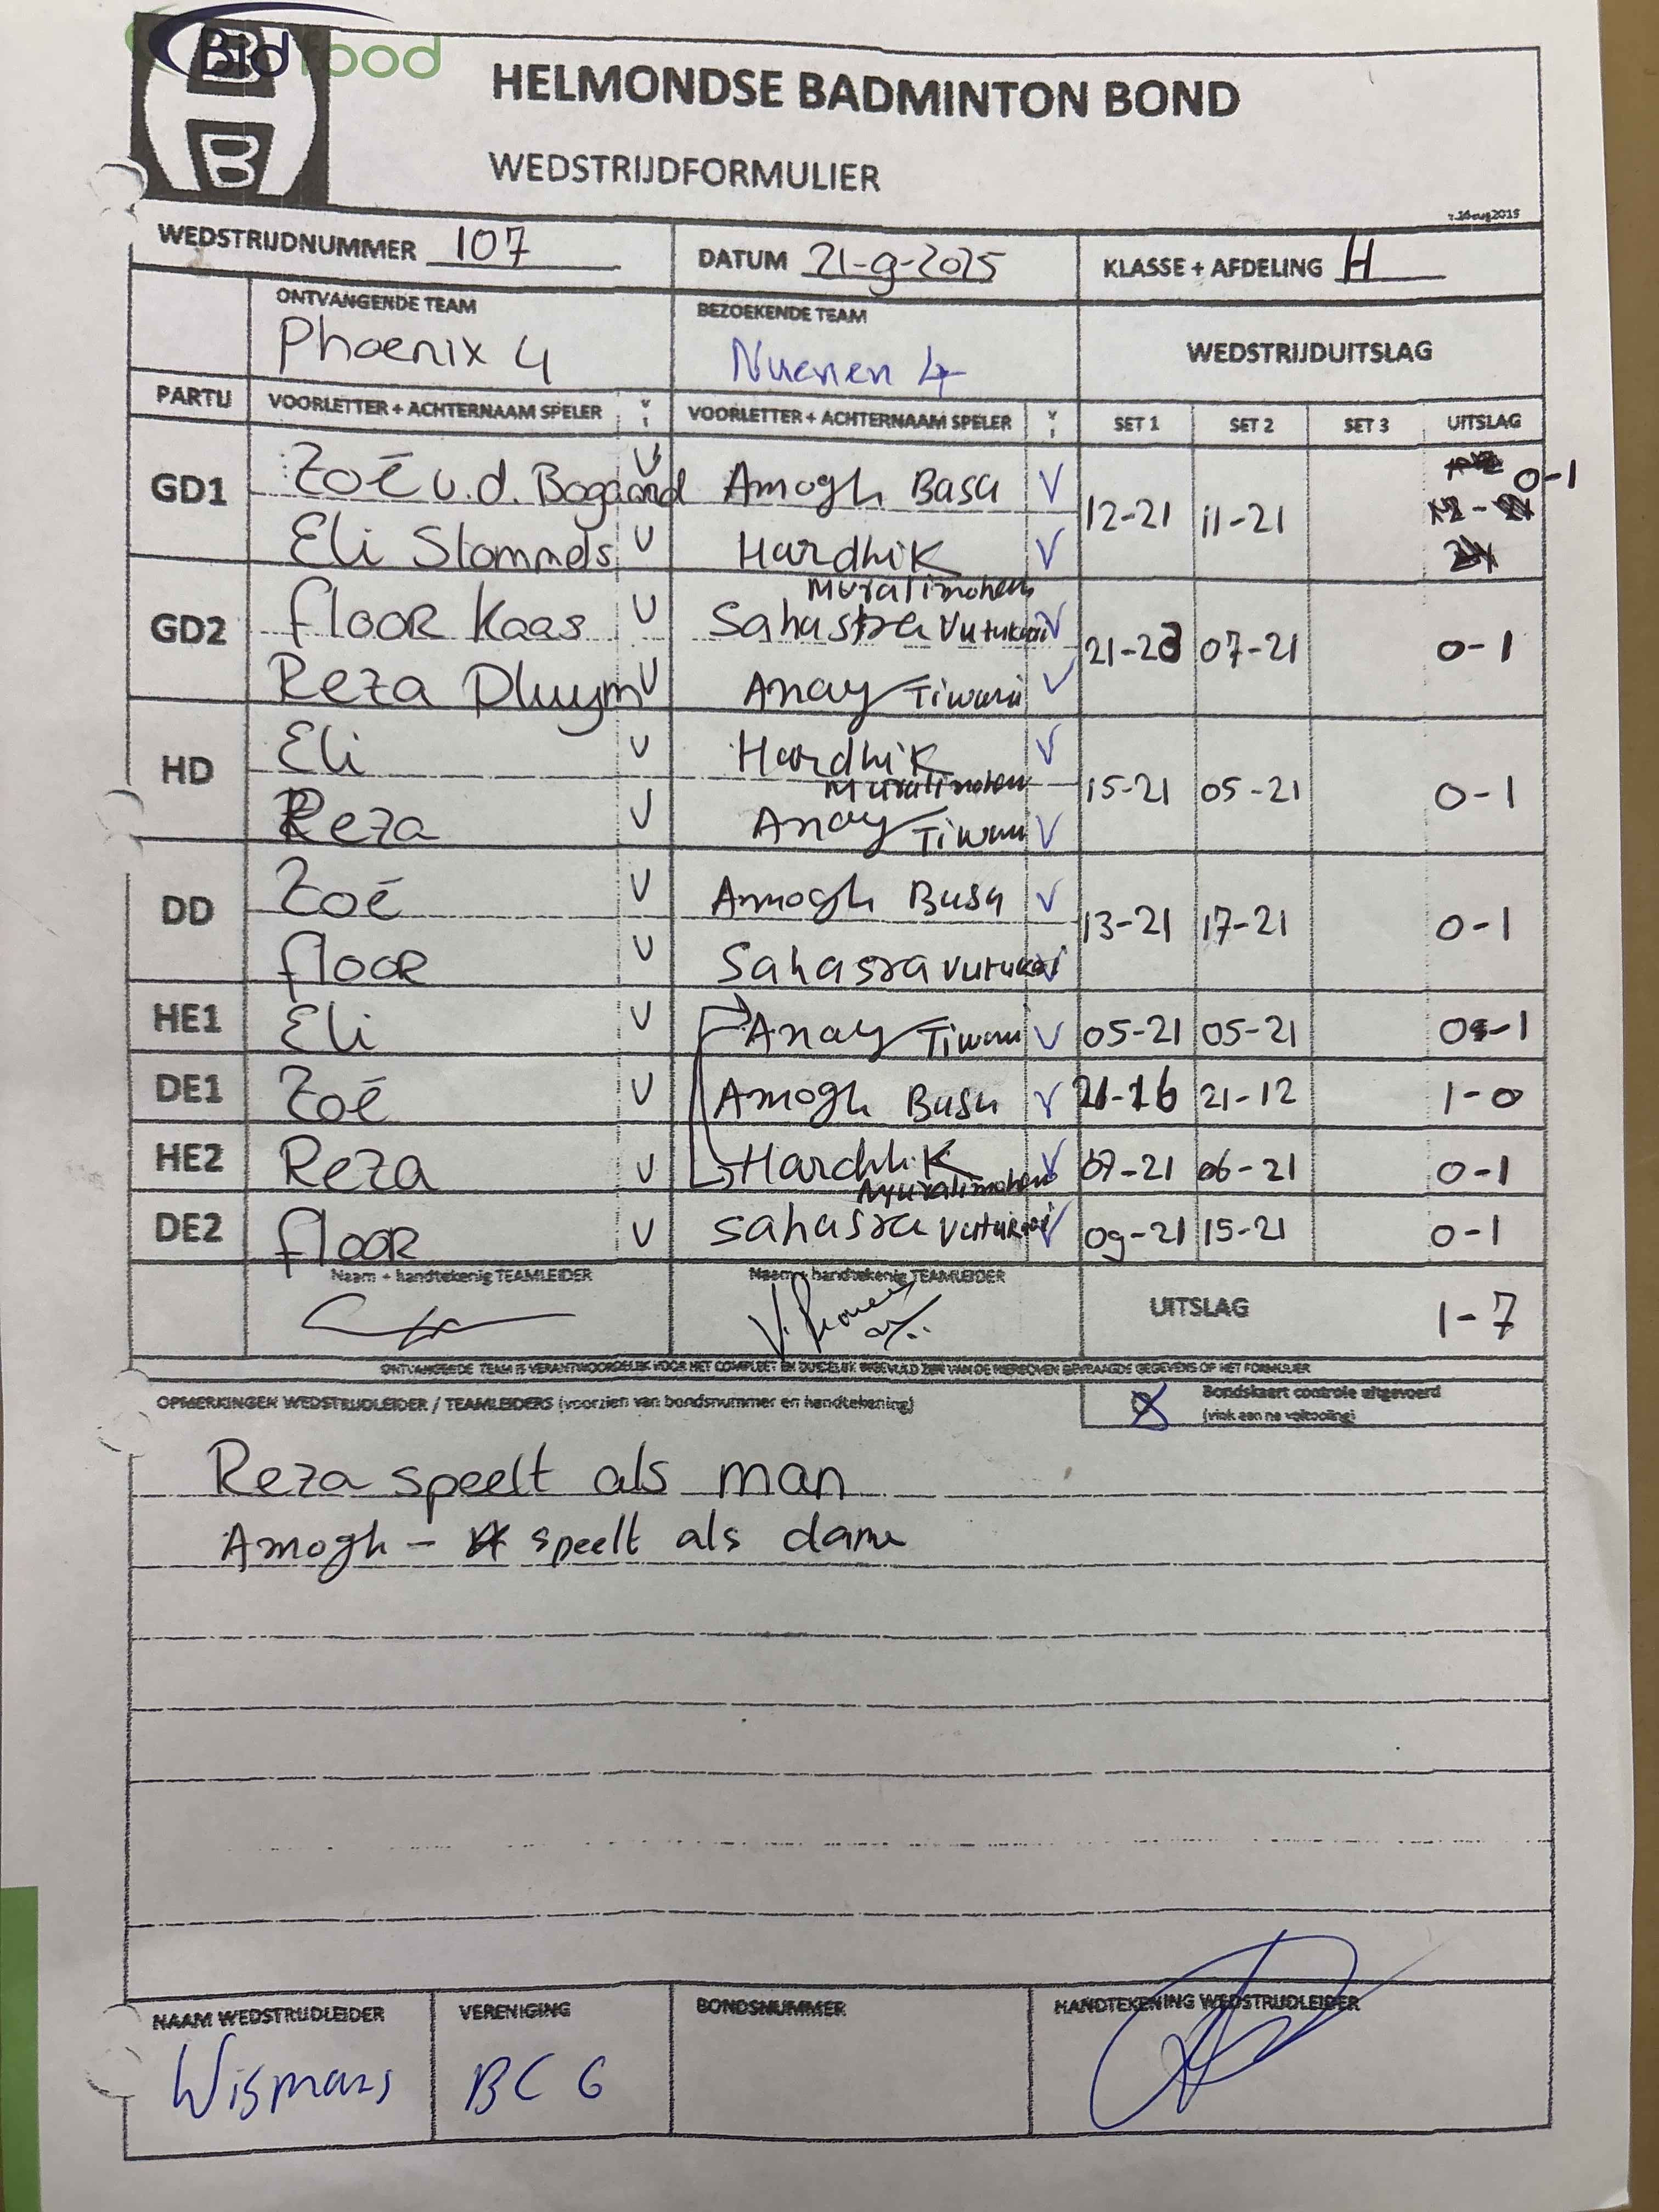 Bidfood
B B
HELMONDSE BADMINTON BOND
WEDSTRIJDFORMULIER
WEDSTRIJDNUMMER 107 DATUM 21-9-2025 KLASSE + AFDELING H
ONTVANGENDE TEAM BEZOEKENDE TEAM
Phoenix 4 Nuenen 4 WEDSTRIJDUITSLAG
PARTIJ VOORLETTER + ACHTERNAAM SPELER VOORLETTER + ACHTERNAAM SPELER SET 1 SET 2 SET 3 UITSLAG
GD1 Zoë v.d. Bogaard V Amogh Basa V 12-21 11-21 0-1
Eli Stommels V Hardhik V
Muralimohan
GD2 floor Kaas V Sahastra Vutukuri V 21-23 07-21 0-1
Reza Pluym V Anay Tiwari V
HD Eli V Hardhik V 15-21 05-21 0-1
Muralimohan
Reza V Anay Tiwari V
DD Zoë V Amogh Basa V 13-21 17-21 0-1
floor V Sahasra Vutukuri V
HE1 Eli V Anay Tiwari V 05-21 05-21 0-1
DE1 Zoë V Amogh Basa V 21-16 21-12 1-0
HE2 Reza V Hardhik V 07-21 06-21 0-1
Muralimohan
DE2 floor V Sahasra Vutukuri V 09-21 15-21 0-1
Naam + handtekenig TEAMLEIDER Naam + handtekenig TEAMLEIDER UITSLAG 1-7
ONTVANGENDE TEAM IS VERANTWOORDELIJK VOOR HET COMPLEET EN DUIDELIJK INGEVULD ZIJN VAN DE HIERBOVEN GEVRAAGDE GEGEVENS OP HET FORMULIER
OPMERKINGEN WEDSTRIJDLEIDER / TEAMLEIDERS (voorzien van bondsnummer en handtekening) Bondskaart controle uitgevoerd
(vink aan na voltooiing)
Reza speelt als man
Amogh - speelt als dame
NAAM WEDSTRIJDLEIDER VERENIGING BONDSNUMMER HANDTEKENING WEDSTRIJDLEIDER
Wismans BC G